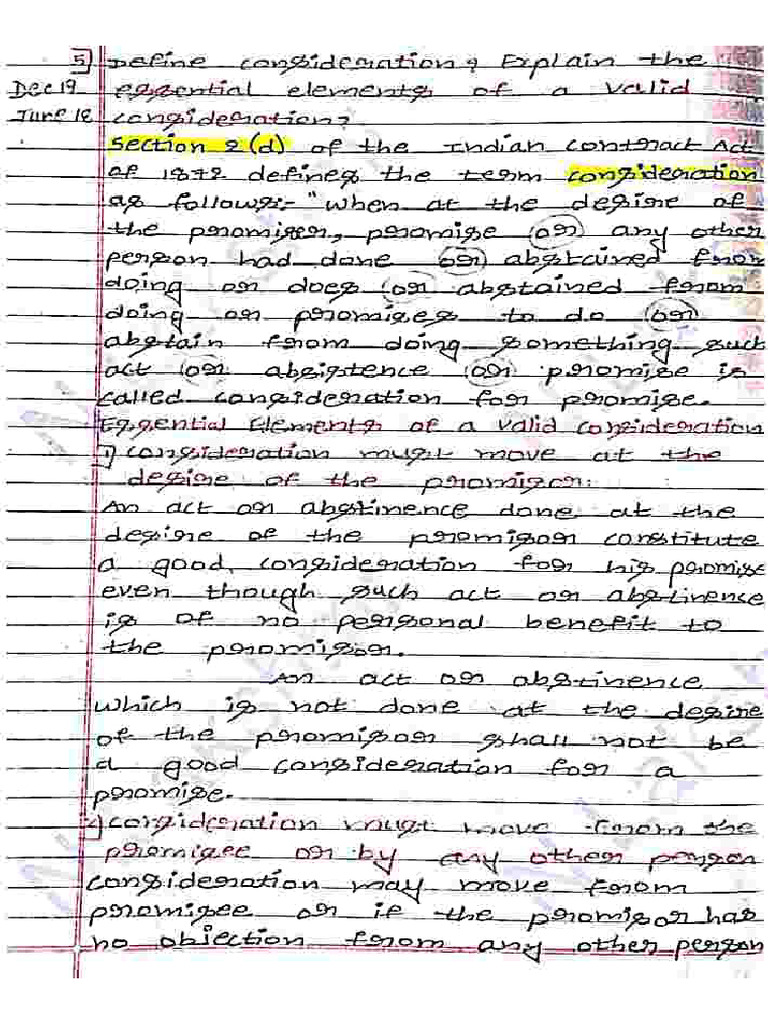 5] Define consideration & Explain the
Dec 19 essential elements of a valid
June 18 consideration?
Section 2(d) of the Indian Contract Act
of 1872 defines the term consideration
as follows:- "When at the desire of
the promiser, promise (or) any other
person had done (or) abstained from
doing or does (or) abstained from
doing or promises to do (or)
abstain from doing something such
act (or) absistence (or) promise is
called consideration for promise.
Essential Elements of a valid consideration
1) consideration must move at the
desire of the promisor:
An act or abstinence done at the
desire of the promisor constitute
a good consideration for his promise
even though such act or abstinence
is of no personal benefit to
the promisor.
An act or abstinence
which is not done at the desire
of the promisor shall not be
a good consideration for a
promise.
2) consideration must move from the
promisee or by any other person
consideration may move from
promisee or if the promisor has
no objection from any other person